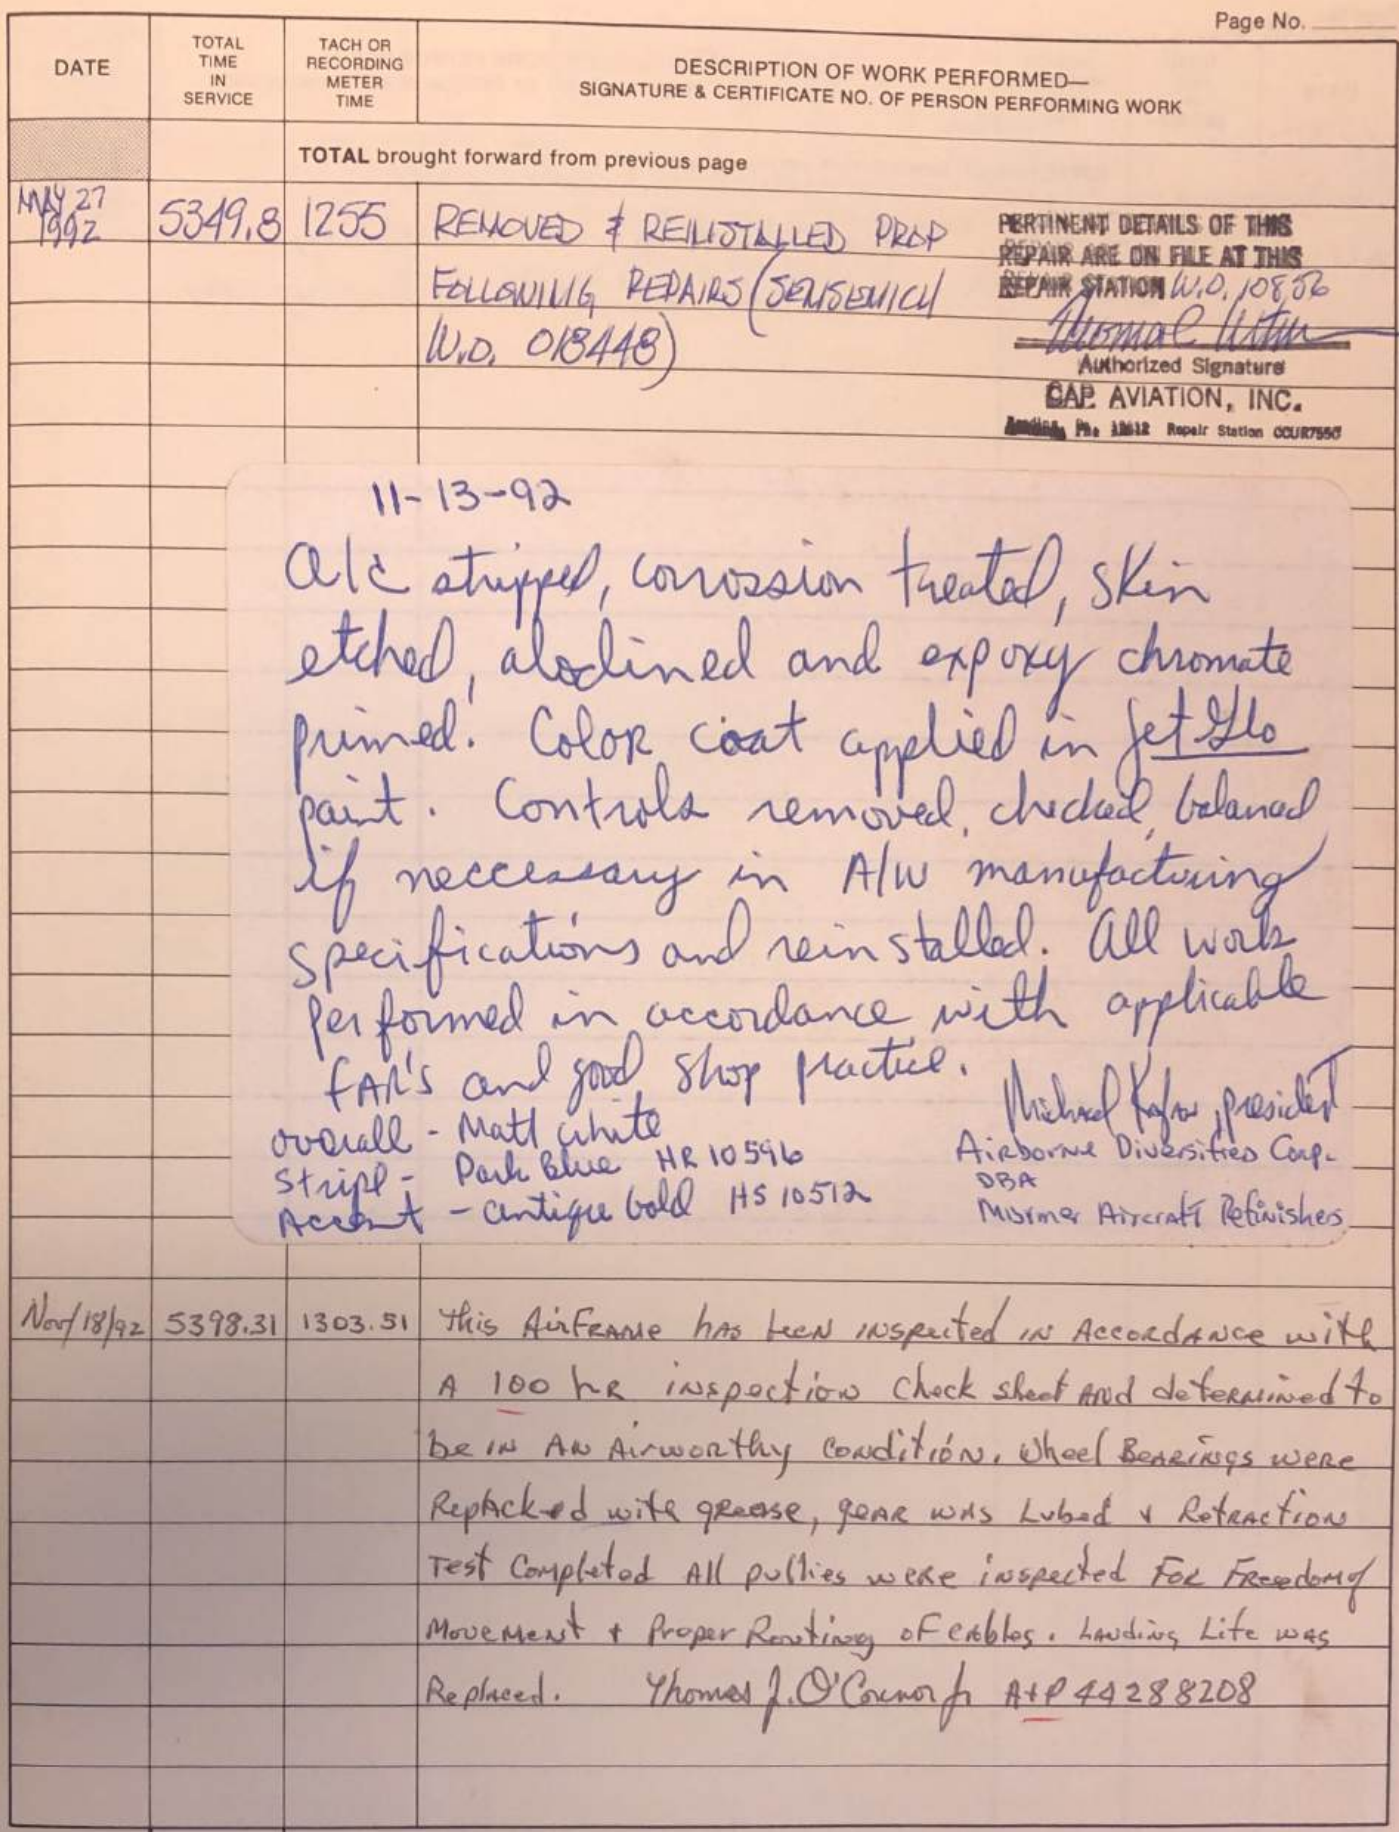 Page No.
DATE
TOTAL TIME IN SERVICE
TACH OR RECORDING METER TIME
DESCRIPTION OF WORK PERFORMED—
SIGNATURE & CERTIFICATE NO. OF PERSON PERFORMING WORK
TOTAL brought forward from previous page
MAY 27 1992 5349.8 1255 REMOVED & REINSTALLED PROP
FOLLOWING REPAIRS (SENSENICH
W.O. 018448)
PERTINENT DETAILS OF THIS
REPAIR ARE ON FILE AT THIS
REPAIR STATION W.O. 10856
Authorized Signature
CAP AVIATION, INC.
Repair Station
11-13-92
a/c stripped, corrossion treated, skin
etched, alodined and expoxy chromate
primed. Color coat applied in Jet Glo
paint. Controls removed, checked, balanced
if neccessary in A/W manufacturing
specifications and reinstalled. All work
performed in accordance with applicable
FAR'S and good shop practice.
Michael president
overall - Matt white
Stripe - Dark Blue HR 10596
Accent - antique Gold HS 10512
Airborne Diversified Corp.
DBA
Aircraft Refinishers
Nov/18/92 5398.31 1303.51 This AirFrame has been inspected in Accordance with
A 100 hr inspection Check sheet and determined to
be in An Airworthy Condition. Wheel Bearings were
Repacked with grease, gear was Lubed & Retraction
Test Completed All pullies were inspected For Freedom of
Movement + Proper Routing of cables. Landing Lite was
Replaced. Thomas J. O'Connor Jr A+P 44288208